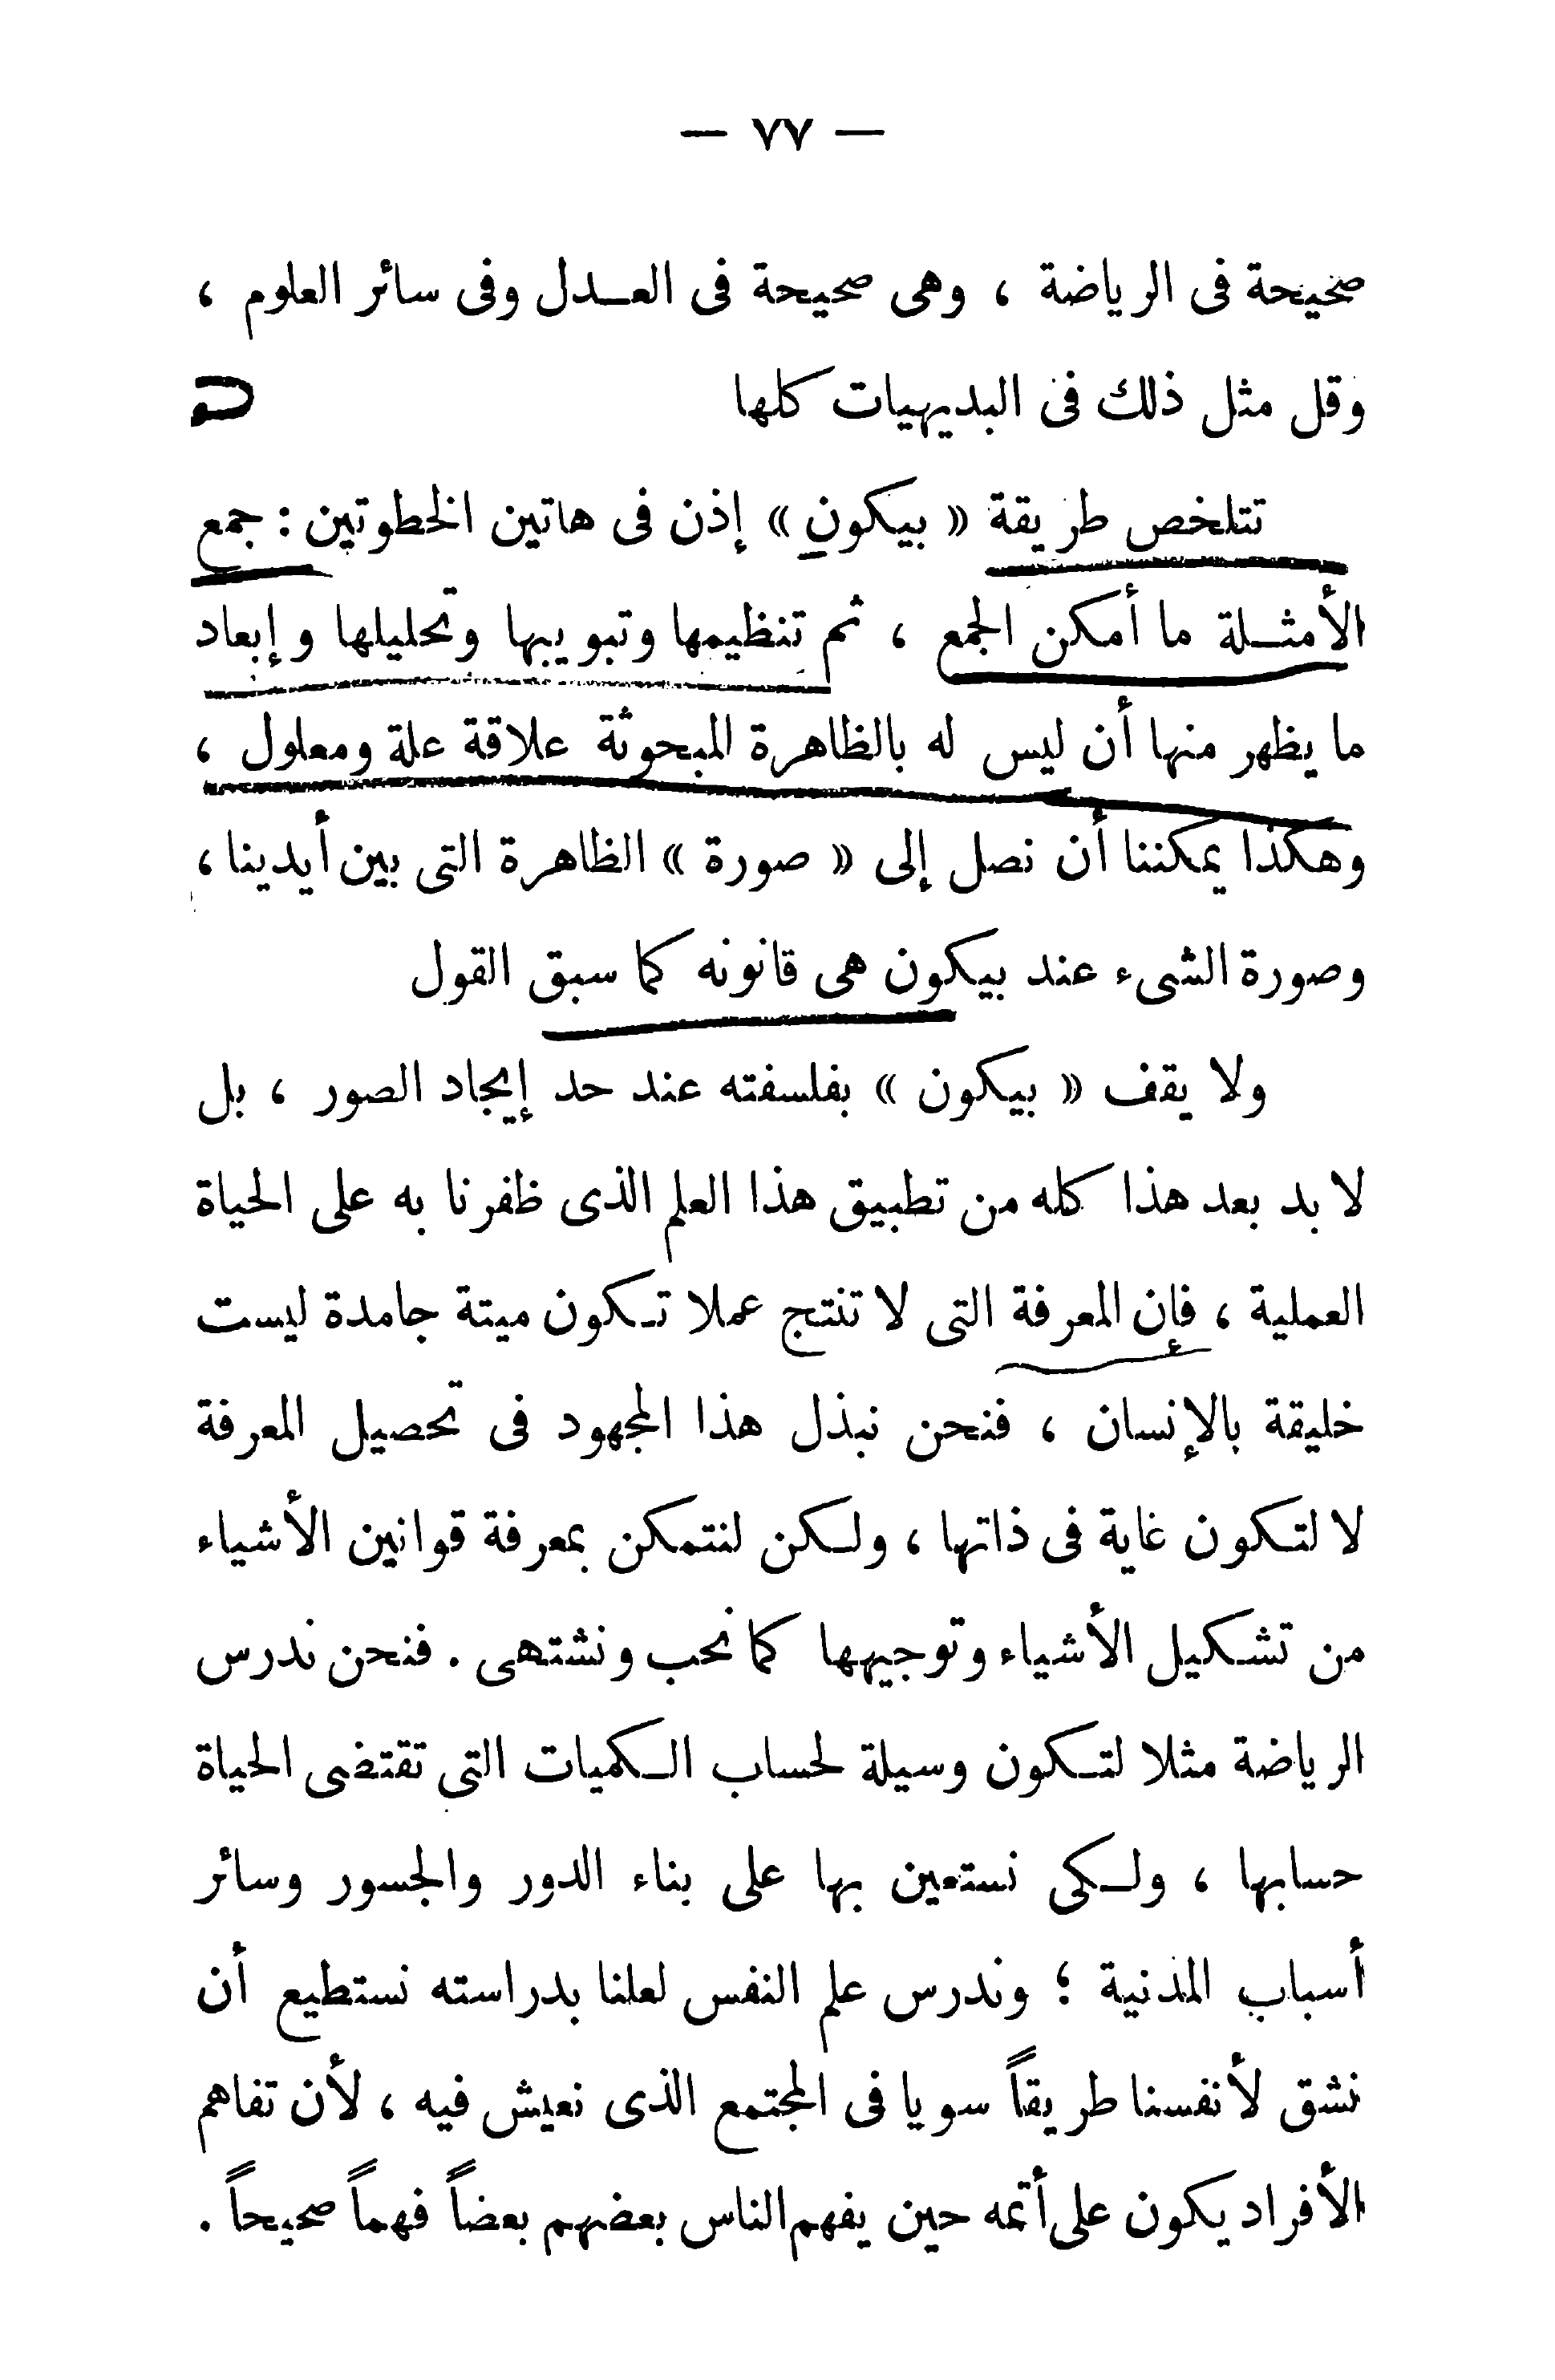 — ٧٧ —
صحيحة فى الرياضة ، وهى صحيحة فى العـدل وفى سائر العلوم ،
وقل مثل ذلك فى البديهيات كلها
تتلخص طريقة « بيكون » إذن فى هاتين الخطوتين : جمع
الأمثـلة ما أمكن الجمع ، ثم تنظيمها وتبويبها وتحليلها وإبعاد
ما يظهر منها أن ليس له بالظاهرة المبحوثة علاقة علة ومعلول ،
وهكذا يمكننا أن نصل إلى « صورة » الظاهرة التى بين أيدينا ،
وصورة الشىء عند بيكون هى قانونه كما سبق القول
ولا يقف « بيكون » بفلسفته عند حد إيجاد الصور ، بل
لا بد بعد هذا كله من تطبيق هذا العلم الذى ظفرنا به على الحياة
العملية ، فإن المعرفة التى لا تنتج عملا تـكون ميتة جامدة ليست
خليقة بالإنسان ، فنحن نبذل هذا المجهود فى تحصيل المعرفة
لا لتـكون غاية فى ذاتها ، ولـكن لنتمكن بمعرفة قوانين الأشياء
من تشـكيل الأشياء وتوجيهها كما نحب ونشتهى . فنحن ندرس
الرياضة مثلا لتـكون وسيلة لحساب الـكميات التى تقتضى الحياة
حسابها ، ولـكى نستعين بها على بناء الدور والجسور وسائر
أسباب المدنية ؛ وندرس علم النفس لعلنا بدراسته نستطيع أن
نشق لأنفسنا طريقاً سويا فى المجتمع الذى نعيش فيه ، لأن تفاهم
الأفراد يكون على أتمه حين يفهم الناس بعضهم بعضاً فهماً صحيحاً .